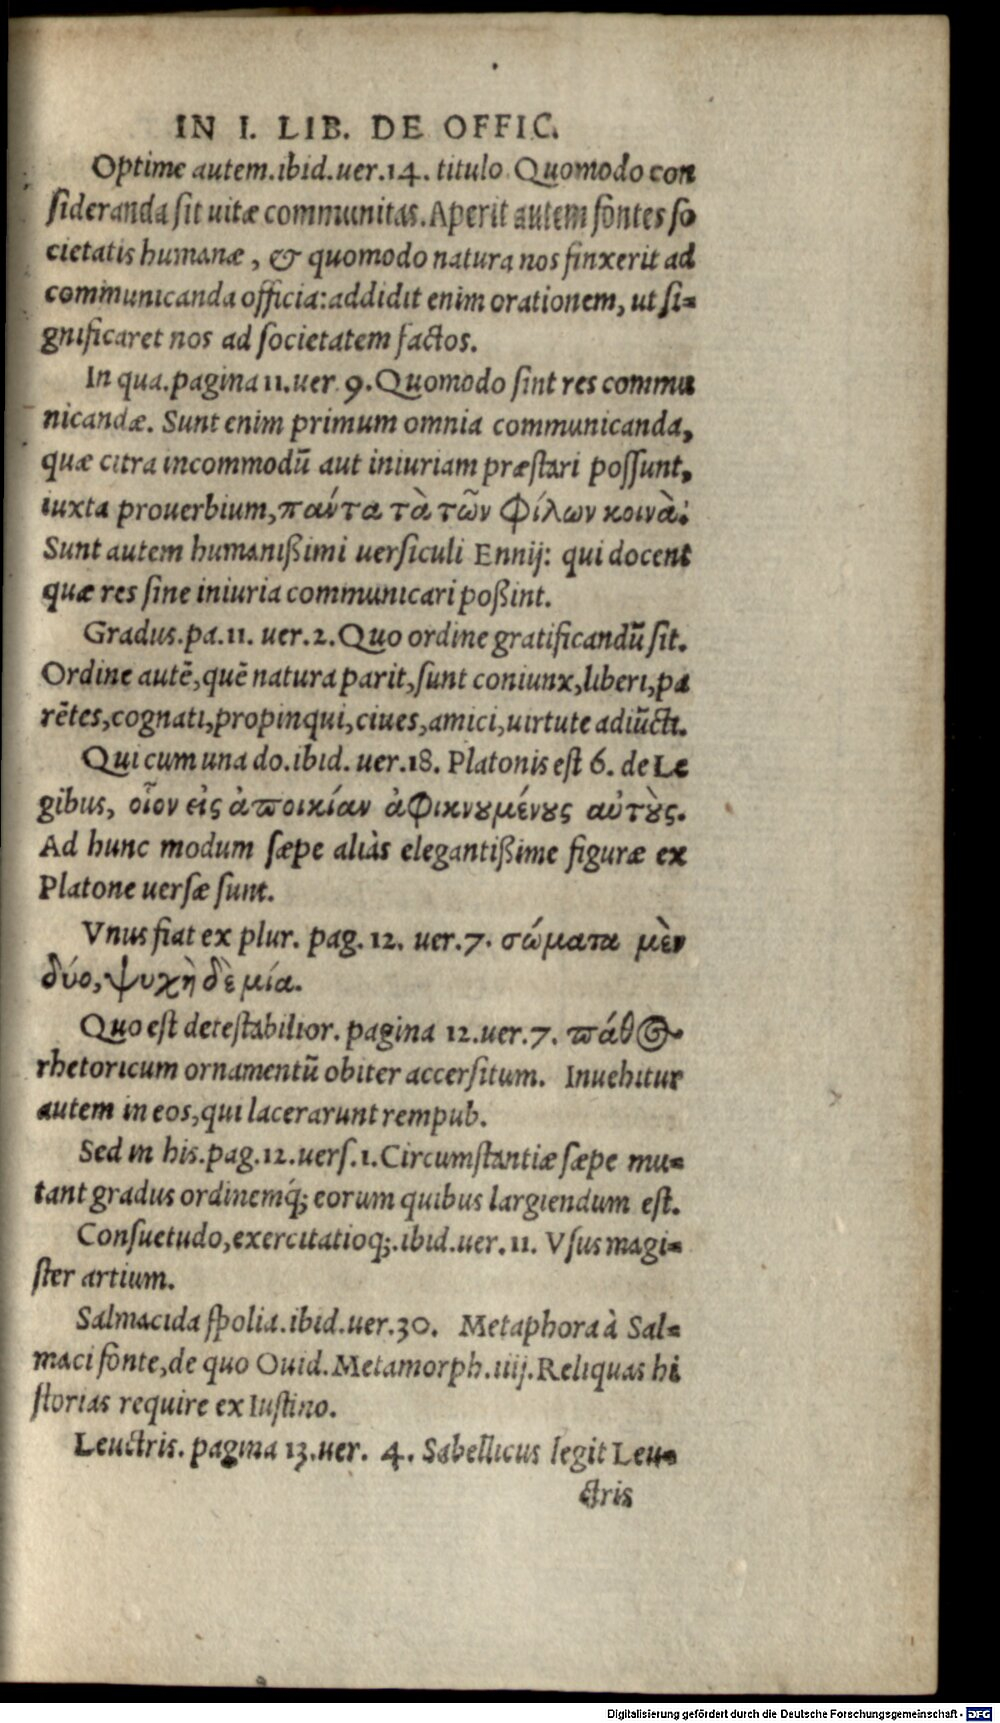 IN I. LIB. DE OFFIC.
Optime autem.ibid.uer.14. titulo Quomodo con
sideranda sit uitæ communitas. Aperit autem fontes so
cietatis humanæ, & quomodo natura nos finxerit ad
communicanda officia: addidit enim orationem, ut si=
gnificaret nos ad societatem factos.
In qua.pagina 11.uer. 9. Quomodo sint res commu
nicandæ. Sunt enim primum omnia communicanda,
quæ citra incommodū aut iniuriam præstari possunt,
iuxta prouerbium, πάντα τὰ τῶν φίλων κοινὰ:
Sunt autem humanißimi uersiculi Ennij: qui docent
quæ res sine iniuria communicari poßint.
Gradus.pa.11. uer.2. Quo ordine gratificandū sit.
Ordine autē, quē natura parit, sunt coniunx, liberi, pa
rētes, cognati, propinqui, ciues, amici, uirtute adiūcti.
Qui cum una do.ibid. uer.18. Platonis est 6. de Le
gibus, οἷον εἰς ἀποικίαν ἀφικνȣμένȣς αὐτȣ̀ς.
Ad hunc modum sæpe aliàs elegantißime figuræ ex
Platone uersæ sunt.
Vnus fiat ex plur. pag. 12. uer.7. σώματα μὲν
δύο, ψυχὴ δὲ μία.
Quo est detestabilior. pagina 12.uer.7. πάθος
rhetoricum ornamentū obiter accersitum. Inuehitur
autem in eos, qui lacerarunt rempub.
Sed in his.pag.12.uers.1. Circumstantiæ sæpe mu=
tant gradus ordinemq́; eorum quibus largiendum est.
Consuetudo, exercitatioq́;.ibid.uer.11. Vsus magi=
ster artium.
Salmacida spolia.ibid.uer.30. Metaphora à Sal=
maci fonte, de quo Ouid. Metamorph.iiij. Reliquas hi
storias require ex Iustino.
Leuctris. pagina 13.uer. 4. Sabellicus legit Leu=
ctris
Digitalisierung gefördert durch die Deutsche Forschungsgemeinschaft - DFG